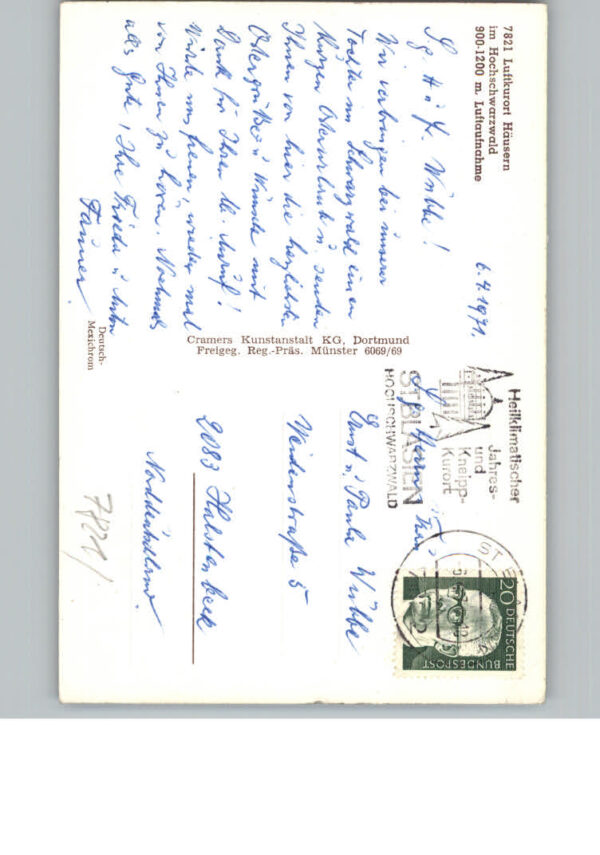 7821 Luftkurort Häusern
im Hochschwarzwald
900-1200 m. Luftaufnahme
6.4.1971.
Lg. H. u. Fr. Wübbe!
Wir verbringen bei unserer
Tochter im Schwarzwald einen
kurzen Osterurlaub u. senden
Ihnen von hier die herzlichsten
Ostergrüße u. Wünsche mit
Dank für Ihren lb. Anruf!
Würde uns freuen, wieder mal
von Ihnen zu hören. Nochmals
alles Gute, Ihre Frieda u. Anton
Cramers Kunstanstalt KG, Dortmund
Freigeg. Reg.-Präs. Münster 6069/69
Deutsch-
Mexichrom
Heilklimatischer
Jahres-
und
Kneipp-
Kurort
ST.BLASIEN
HOCHSCHWARZWALD
ST BLA
20 DEUTSCHE
BUNDESPOST
Herrn u. Frau
Ernst u. Paula Wübbe
Weidenstraße 5
2083 Halstenbek
Norddeutschland.
7821/